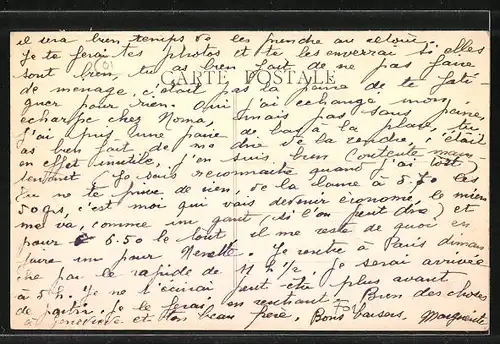 il sera bien temps de les prendre au retour.
Je te ferai tes photos et tu les enverrai si elles
sont bien, tu as bien fait de ne pas faire
CARTE POSTALE
de menage, c'était pas la peine de te fati-
guer pour rien. Oui j'ai echangé mon
echarpe chez Noma, mais pas sans peine,
j'ai pris une paire de bas à la place, tu
as bien fait de me dire de la rendre, c'était
en effet inutile, j'en suis bien contente
(Je sais reconnaitre quand j'ai tort)
tu ne te prive de rien, de la laine à 5.70 les
50 grs, c'est moi qui vais devenir econome, le mien
me va, comme un gant (si l'on peut dire) et
pour 6.50 le tout il me reste de quoi en
faire un pour Ninette. Je rentre à Paris diman-
che par le rapide de 11 h 1/2. Je serai arrivée
à 5 h. Je ne t'écrirai peut être plus avant
de partir, je le ferai en rentrant. Bien des choses
à Geneviève et ton beau frère, Bons baisers, Marguerite